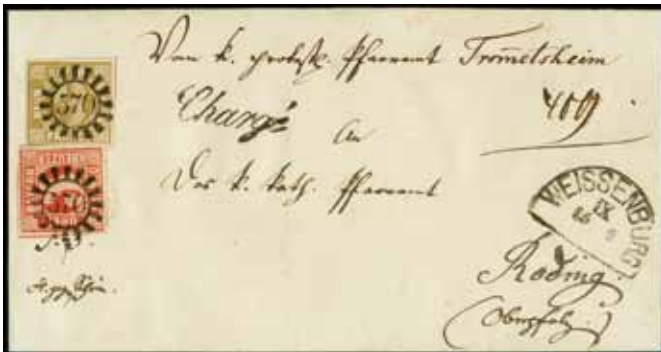 Von k. protest. Pfarramt Trom̅etsheim
Chargé
409
An
Das k. kath. Pfarramt
WEISSENBURG
IX
Roding
(Oberpfalz)
370
370